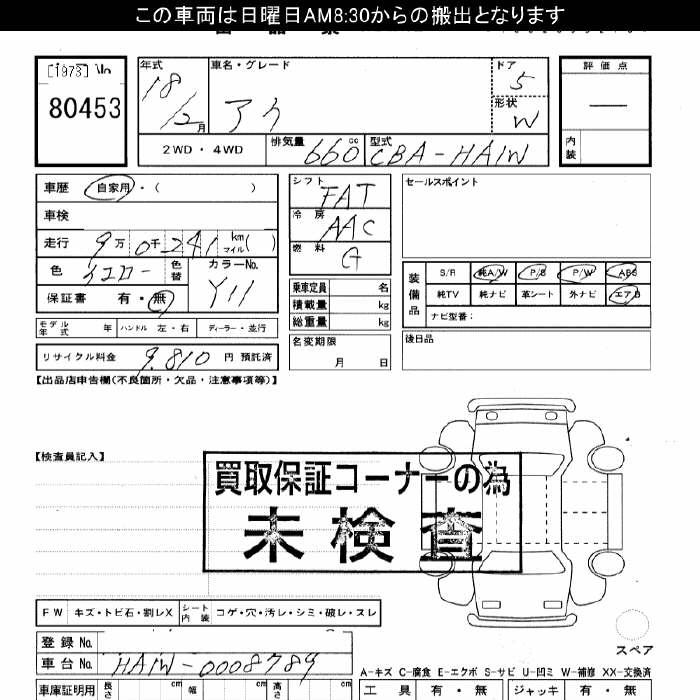 この車両は日曜日AM8:30からの搬出となります
[1973] No
80453
年式 18/12月
車名・グレード アイ
ドア 5
形状 W
評価点 —
内装
2WD・4WD 排気量 660cc 型式 CBA-HA1W
車歴 自家用・( )
車検
走行 9万0千241km マイル( )
色 イエロー 色替 カラーNo. Y11
保証書 有・無
モデル年式 年 ハンドル 左・右 ディーラー・並行
リサイクル料金 9,810 円 預託済
シフト FAT
冷房 AAC
燃料 G
乗車定員 名
積載量 kg
総重量 kg
名変期限 月 日
セールスポイント
装備品
S/R 純A/W P/S P/W ABS
純TV 純ナビ 革シート 外ナビ エアB
ナビ型番:
後日品
【出品店申告欄(不良箇所・欠品・注意事項等)】
【検査員記入】
買取保証コーナーの為
未検査
FW キズ・トビ石・割レX シート内装 コゲ・穴・汚レ・シミ・破レ・スレ
スペア
登録No.
車台No. HA1W-0008789
A-キズ C-腐食 E-エクボ S-サビ U-凹ミ W-補修 XX-交換済
車庫証明用 長さ cm 幅 cm 高さ cm
工具 有・無 ジャッキ 有・無